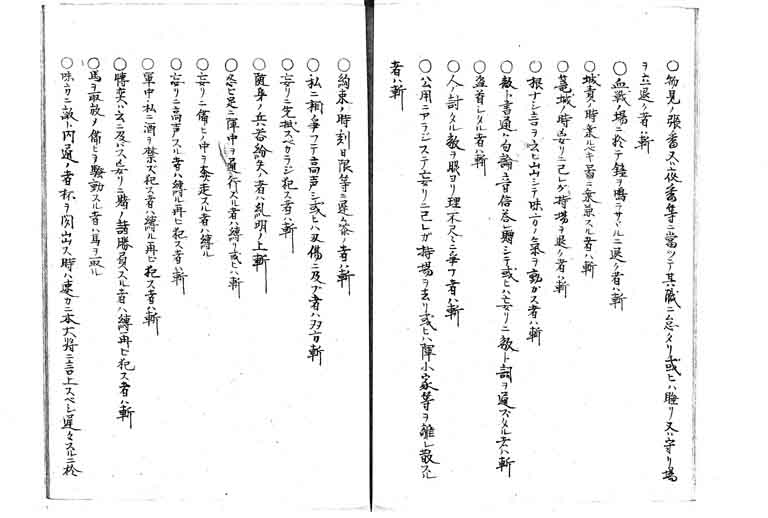 〇物見ノ張番又ハ夜番等ニ當ツテ其職ニ怠タリ或ヒハ睡リ又ハ守リ場
ヲ立退ク者ハ斬
〇血戦ノ場ニ於テ鐘ヲ鳴ラサヾルニ退ク者ハ斬
〇城責ノ時乗ルベキ
〇篭城ノ時妄リニ己レガ持場ヲ退ク者ハ斬
〇根ナシ言ヲ云ヒ出シテ味方ノ気ヲ動カス者ハ斬
〇敵ト書通ハ勿論音信答礼贈シテ或ヒハ妄リニ敵ト詞ヲ通ズタル者ハ斬
〇盗首シタル者ハ斬
〇人ノ討タル敵ヲ眼ヨリ理不尽ニ争フ者ハ斬
〇公用ニアラジステ妄リニ己レガ持場ヲ去リ或ヒハ陣小家等ヲ離レ散スル
者ハ斬
〇約束ノ時刻日限等ニ遅参ノ者ハ斬
〇私ニ相争フテ高声シ或ヒハ刃傷ニ及ブ者ハ双方斬
〇妄リニ先掛スベカラジ犯ス者ハ斬
〇随身ノ兵器紛失ノ者ハ糺明ノ上斬
〇陣中ヲ通行スル者ハ縛リ或ヒハ斬
〇妄リニ備ヒノ中ヲ奔走スル者ハ縛ル
〇妄リニ高声スル者ハ縛ル再ビ犯ス者ハ斬
〇軍中私ニ酒ヲ禁ズ犯ス者ハ縛ル再ビ犯ス者ハ斬
〇博奕ハ云ニ及バズ妄リニ賭ノ諸勝負スル者ハ縛ル再ビ犯ス者ハ斬
〇馬ヲ取放ノ備ヒヲ騒動スル者ハ馬ヲ取ル
〇味方ニ敵ト内通ノ者抔ヲ聞出ス時ハ速カニ本大将ニ言上スベシ遅々スルニ於